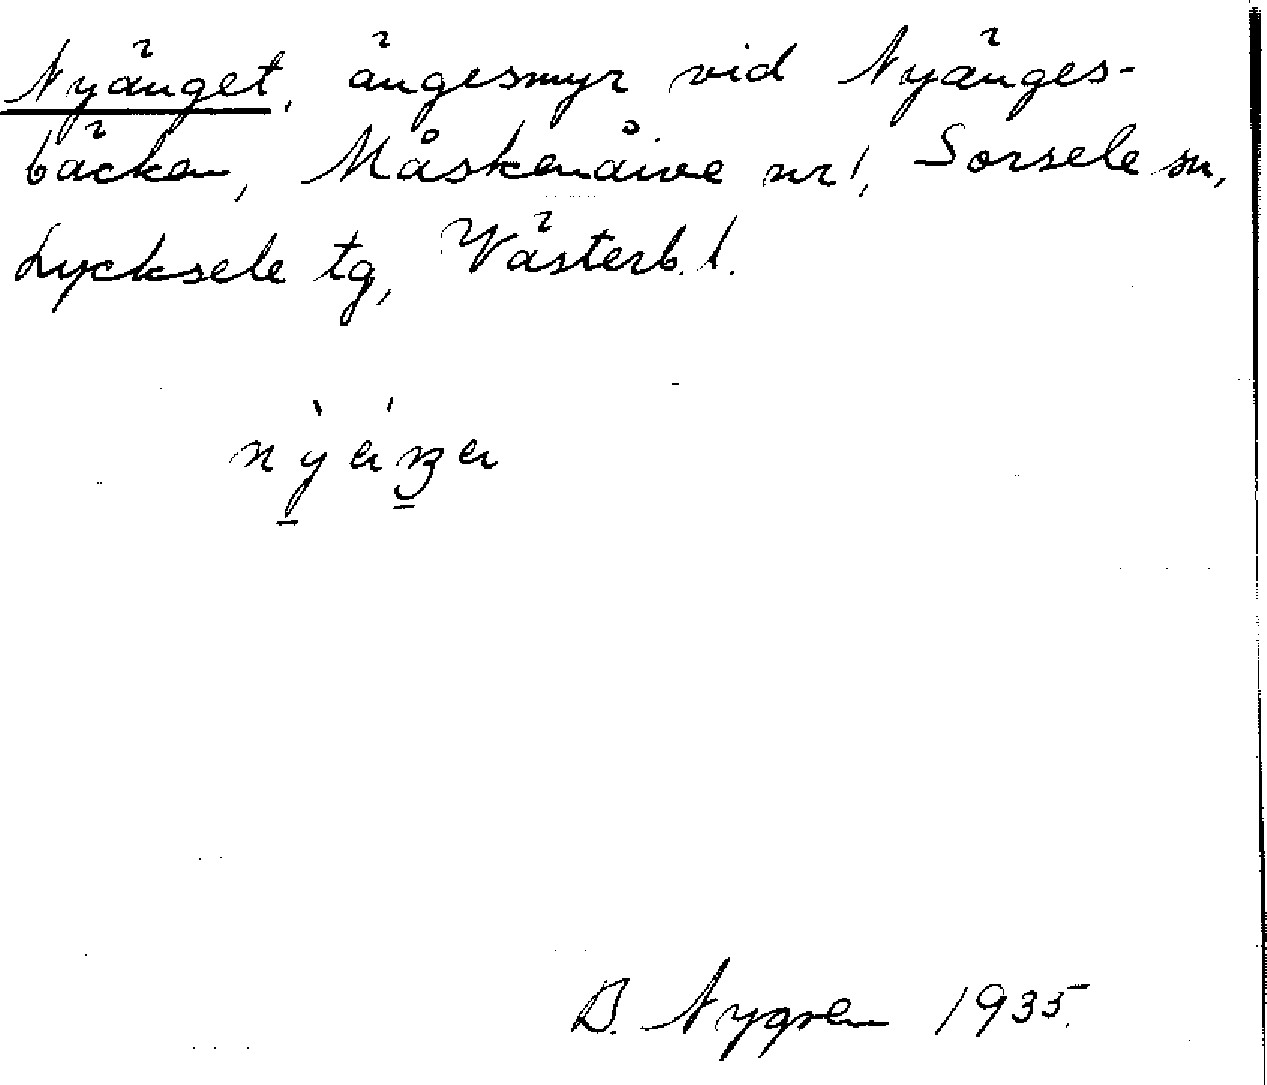 Nyänget, ängesmyr vid Nyänges-
bäcken, Måskenåive nr 1, Sorsele sn,
Lycksele tg, Västerb. l.
B. Nygren 1935.